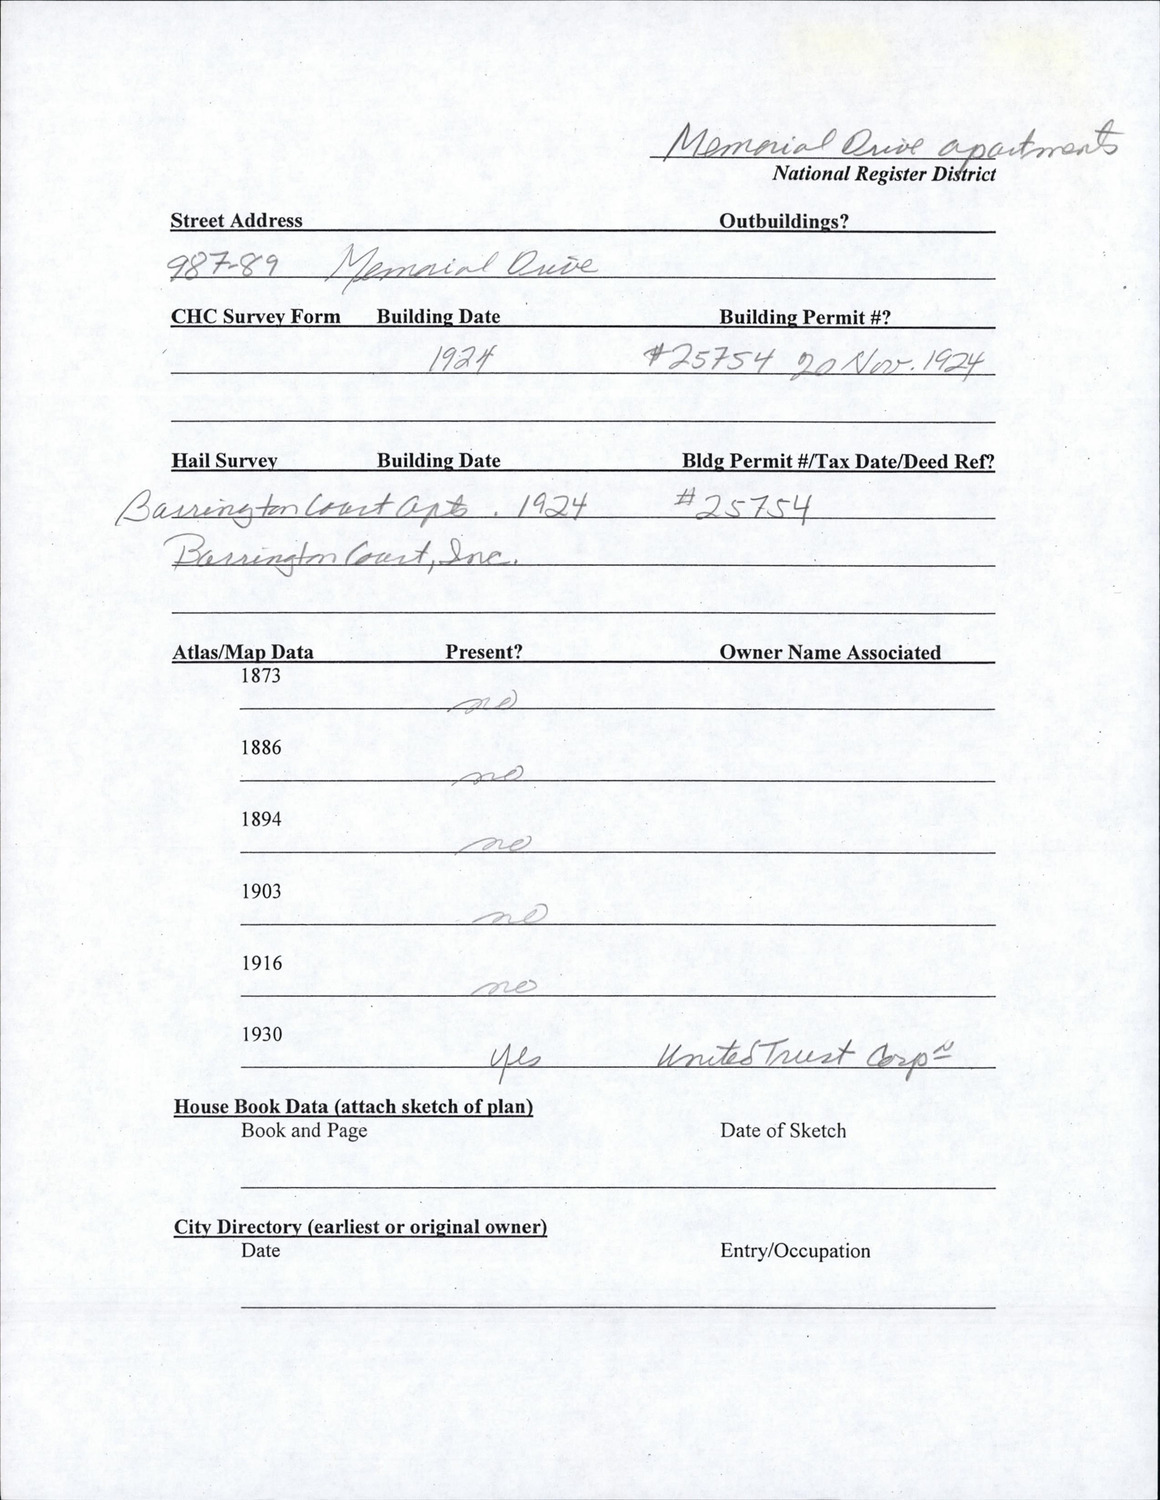 Memorial Drive apartments
National Register District
Street Address Outbuildings?
987-89 Memorial Drive
CHC Survey Form Building Date Building Permit #?
1924 #25754 20 Nov. 1924
Hail Survey Building Date Bldg Permit #/Tax Date/Deed Ref?
Barrington Court Apts. 1924 #25754
Barrington Court, Inc.
Atlas/Map Data Present? Owner Name Associated
1873
no
1886
no
1894
no
1903
no
1916
no
1930
yes United Trust Corpn
House Book Data (attach sketch of plan)
Book and Page Date of Sketch
City Directory (earliest or original owner)
Date Entry/Occupation